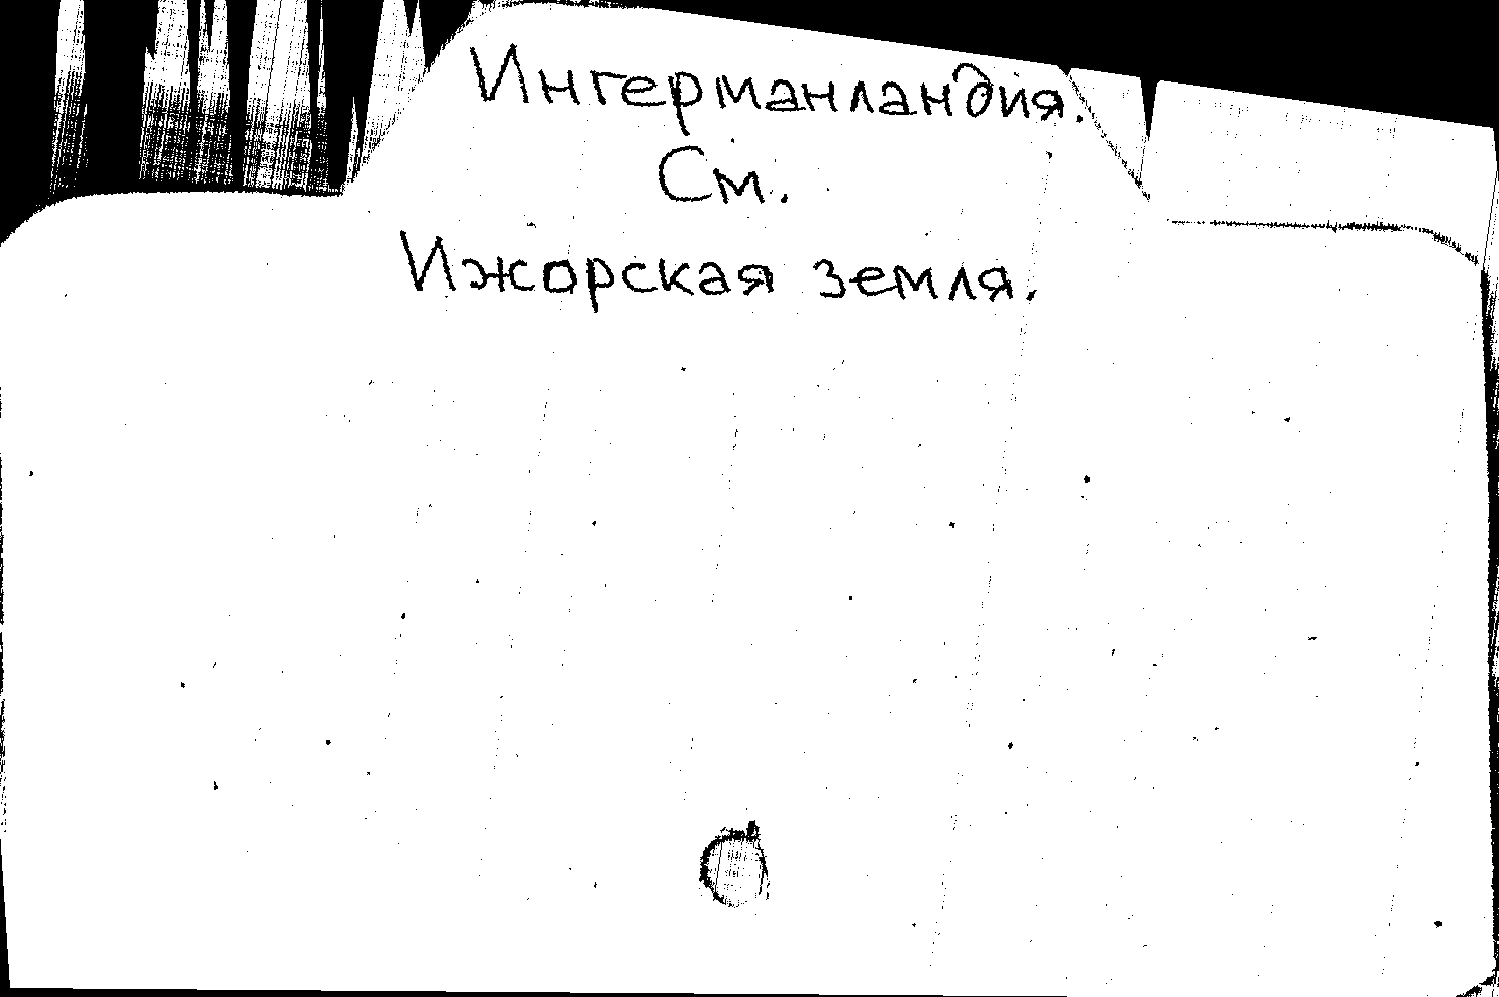 Ингерманландия.
См.
Ижорская земля.